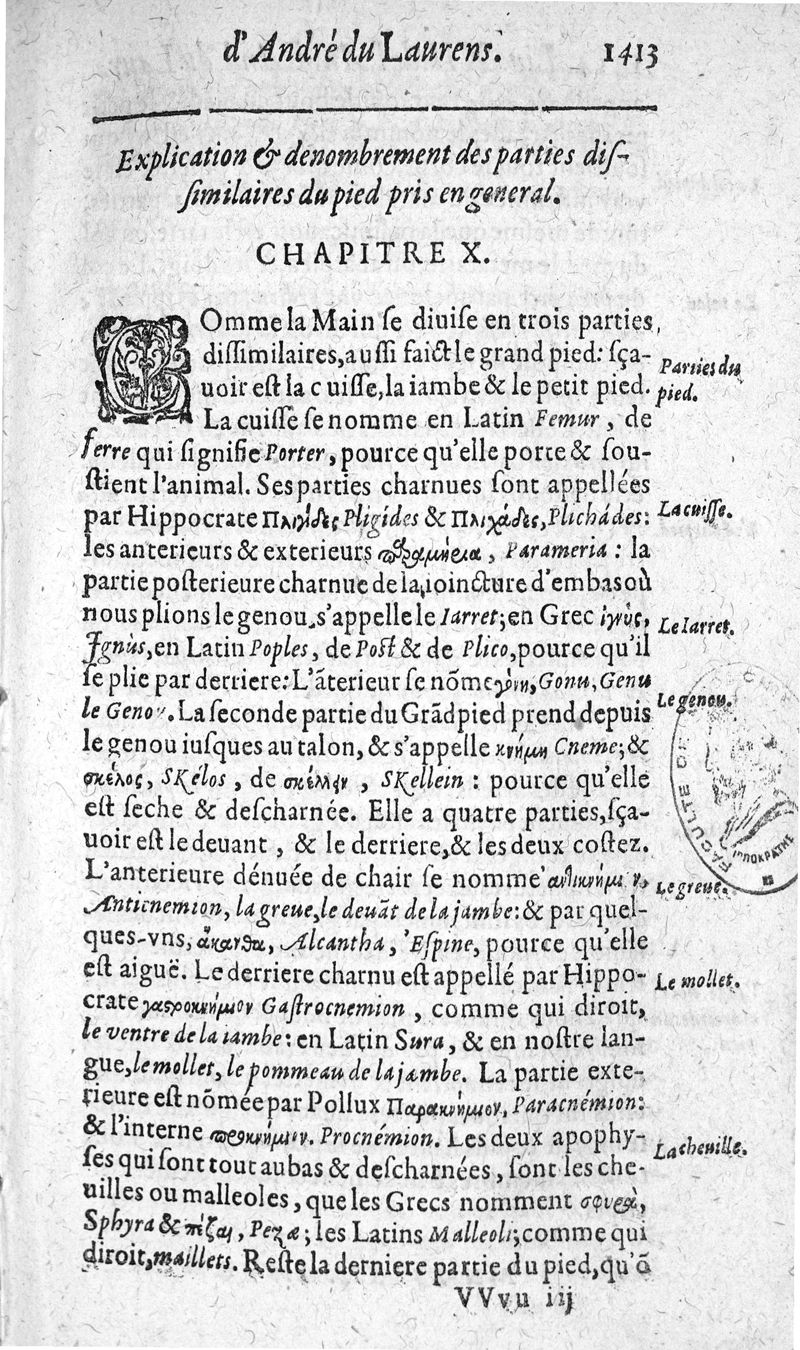 d'André du Laurens. 1413
Explication & denombrement des parties dis-
similaires du pied pris en general.
CHAPITRE X.
COmme la Main se diuise en trois parties,
dissimilaires, aussi faict le grand pied: sça-
uoir est la cuisse, la iambe & le petit pied.
Parties du
pied.
La cuisse se nomme en Latin Femur, de
ferre qui signifie Porter, pource qu'elle porte & sou-
stient l'animal. Ses parties charnues sont appellées
par Hippocrate Πλιγίδες Pligides & Πλιχάδες, Plichádes:
La cuisse.
les anterieurs & exterieurs παραμήεια, Parameria: la
partie posterieure charnue de la ioincture d'embas où
nous plions le genou, s'appelle le Iarret; en Grec ἰγνὺς,
Le Iarret.
Ignùs, en Latin Poples, de Post & de Plico, pource qu'il
se plie par derriere: L'āterieur se nōme γόνυ, Gonu, Genu
le Genou. La seconde partie du Grād pied prend depuis
Le genou.
le genou iusques au talon, & s'appelle κνήμη Cneme; &
σκέλος, SKélos, de σκέλλειν, SKellein: pource qu'elle
est seche & descharnée. Elle a quatre parties, sça-
uoir est le deuant, & le derriere, & les deux costez.
L'anterieure dénuée de chair se nomme
Le greue.
Anticnemion, la greue, le deuāt de la jambe: & par quel-
ques-vns, ἄκανθα, Alcantha, 'Espine, pource qu'elle
est aiguë. Le derriere charnu est appellé par Hippo-
Le mollet.
crate γαστροκνήμιον Gastrocnemion, comme qui diroit,
le ventre de la iambe: en Latin Sura, & en nostre lan-
gue, le mollet, le pommeau de la jambe. La partie exte-
rieure est nōmée par Pollux Παρακνήμιον, Paracnémion:
& l'interne προκνήμιον. Procnémion. Les deux apophy-
La cheuille.
ses qui sont tout au bas & descharnées, sont les che-
uilles ou malleoles, que les Grecs nomment σφυρὰ,
Sphyra & πέζαι, Pezæ; les Latins Malleoli; comme qui
diroit, maillets. Reste la derniere partie du pied, qu'ō
VVvu iij
FACULTE DE
HIPPOKRATHE